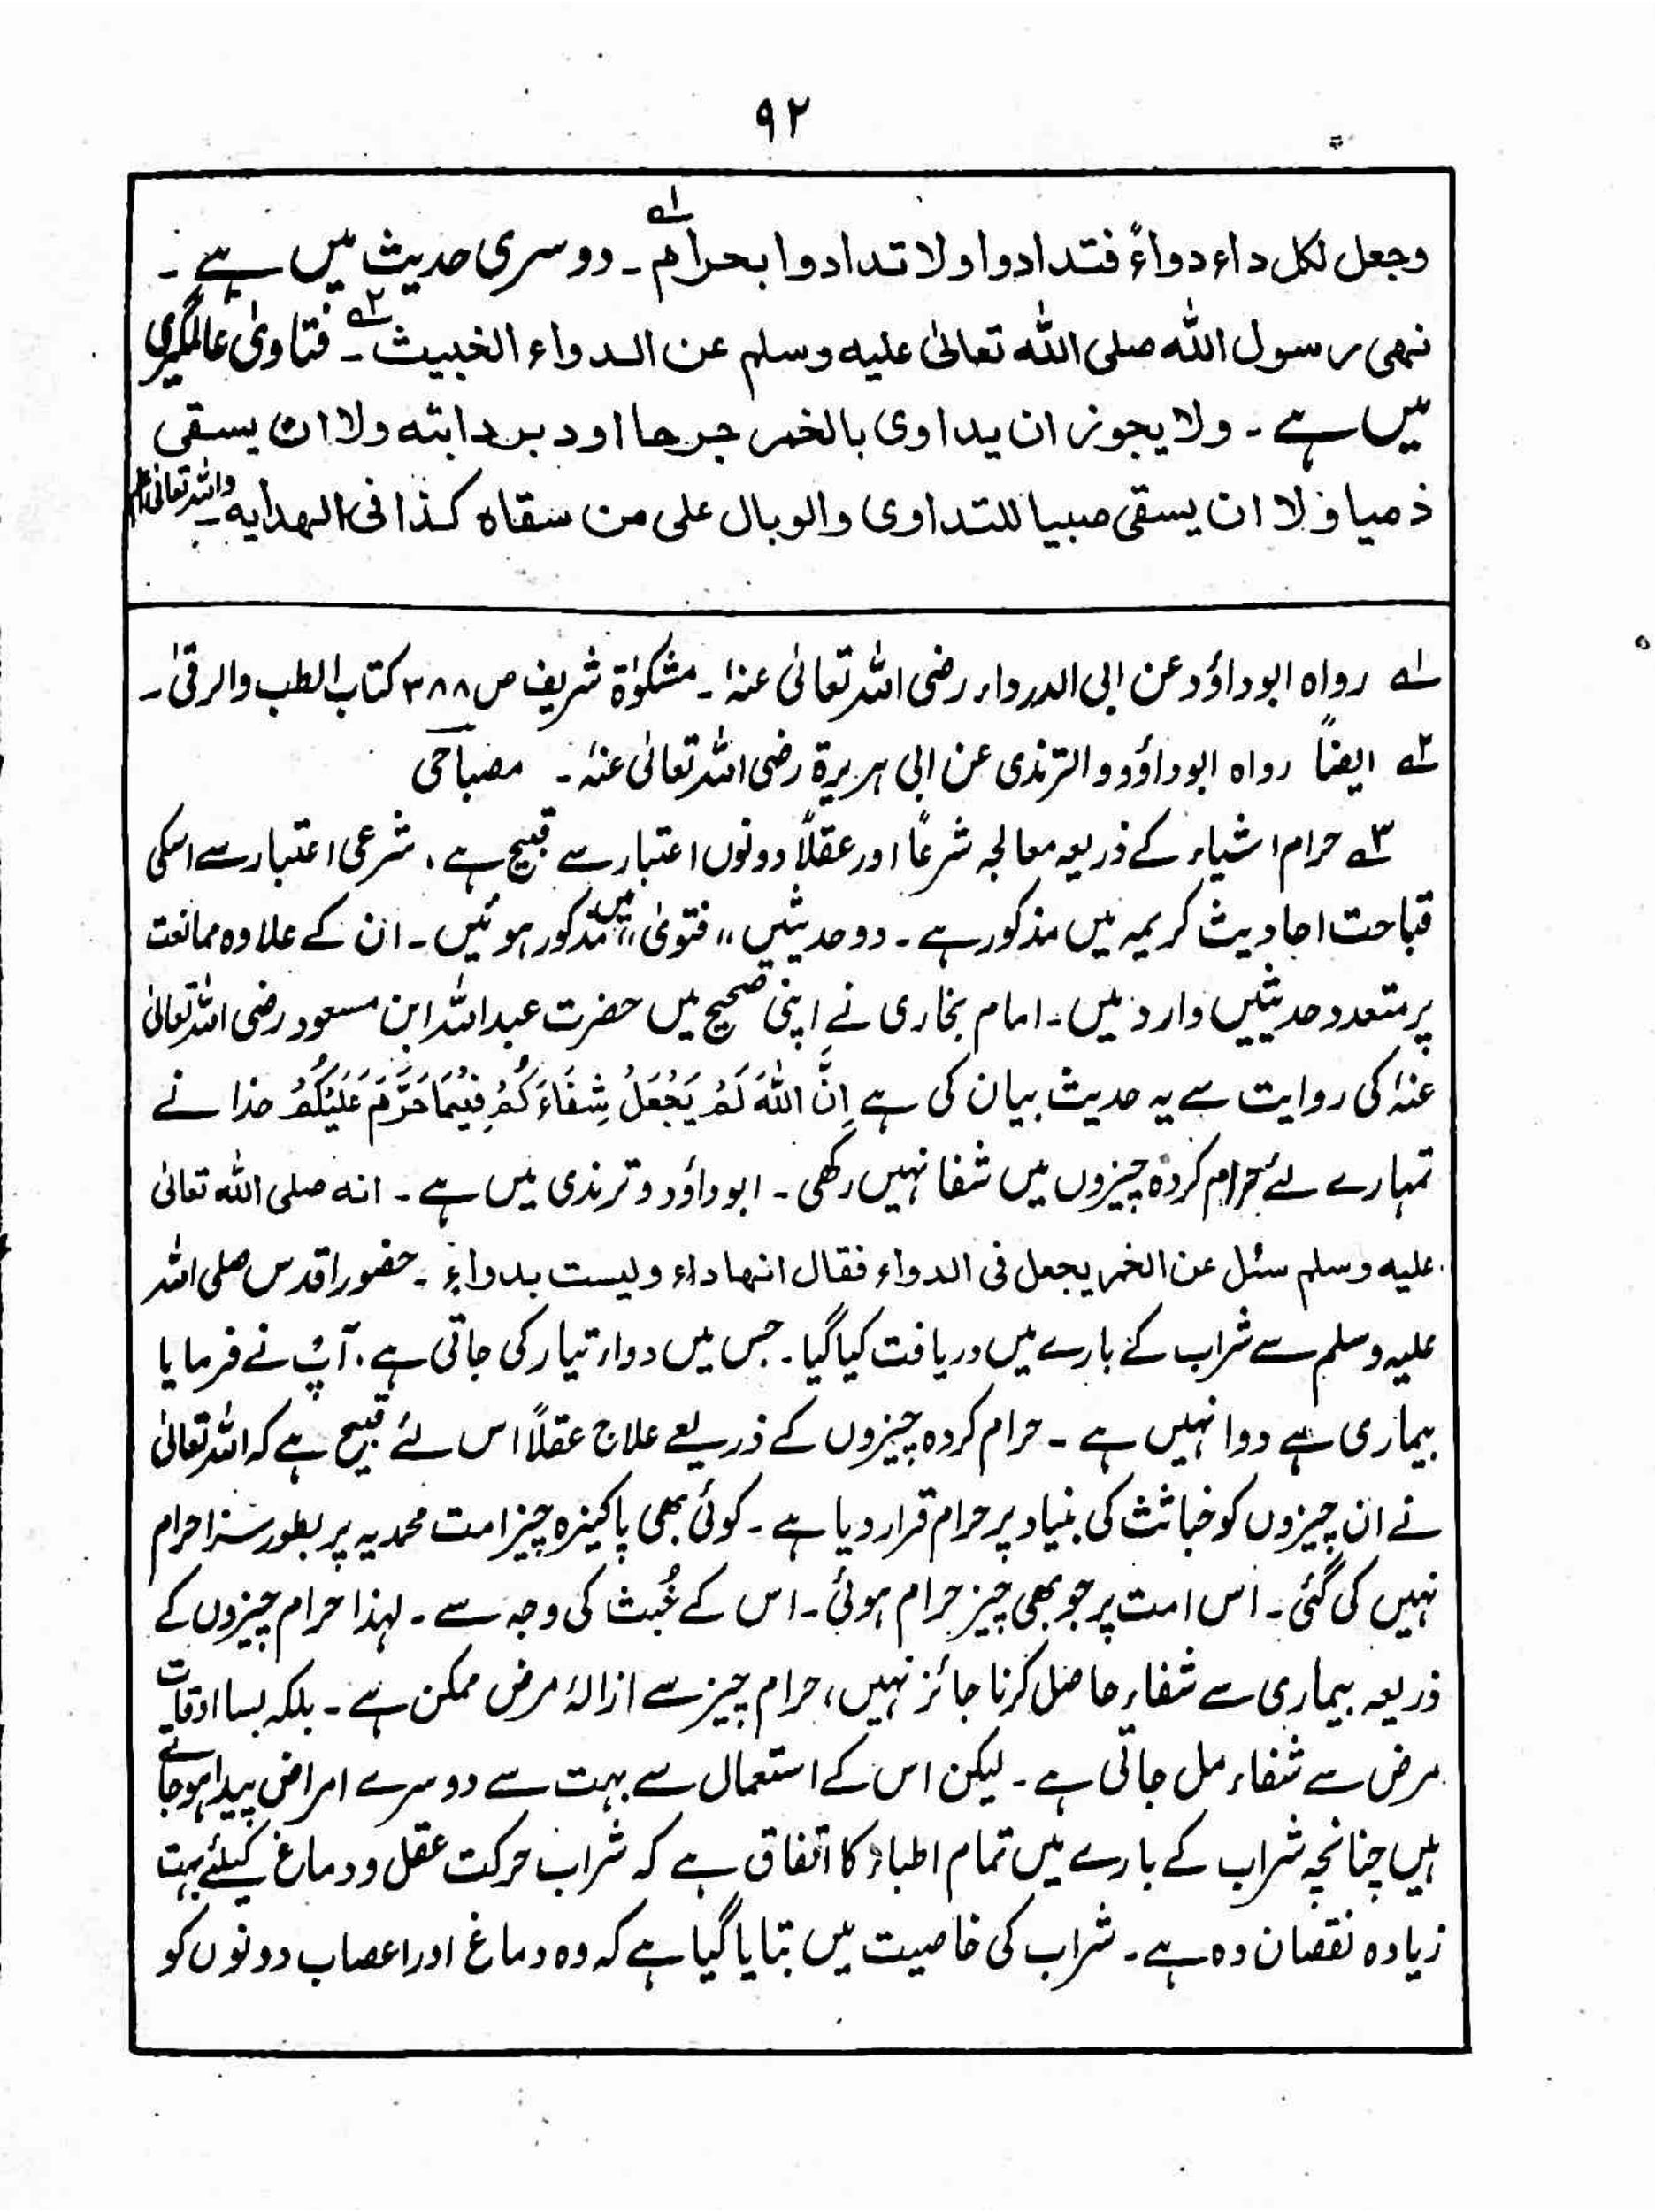 ۹۲
وجعل لکل داء دواءً فتدادوا ولا تدادوا بحرام ۱؎ ۔ دوسری حدیث میں ہے ۔
نهی رسول الله صلی الله تعالیٰ علیه وسلم عن الدواء الخبیث ۲؎ ۔ فتاویٰ عالمگیری
میں ہے ۔ ولا یجوز ان یداوی بالخمر جرحا اودبر دابته ولا ان یسقی
ذمیا ولا ان یسقی صبیا للتداوی والوبال علی من سقاه کذا فی الهدایه ۔ واللہ تعالیٰ اعلم
۱؎ رواہ ابوداؤد عن ابی الدرداء رضی اللہ تعالیٰ عنہٗ ۔ مشکوٰۃ شریف ص ۳۸۸ کتاب الطب والرقیٰ ۔
۲؎ ایضاً رواہ ابوداؤد والترمذی عن ابی ہریرۃ رضی اللہ تعالیٰ عنہٗ ۔ مصباحی
۳؎ حرام اشیاء کے ذریعہ معالجہ شرعاً اور عقلاً دونوں اعتبار سے قبیح ہے ، شرعی اعتبار سے اسکی
قباحت احادیث کریمہ میں مذکور ہے ۔ دو حدیثیں ،، فتویٰ ،، میں مذکور ہوئیں ۔ ان کے علاوہ ممانعت
پر متعدد حدیثیں وارد ہیں ۔ امام بخاری نے اپنی صحیح میں حضرت عبداللہ ابن مسعود رضی اللہ تعالیٰ
عنہٗ کی روایت سے یہ حدیث بیان کی ہے اِنَّ اللهَ لَمْ یَجْعَلْ شِفَاءَ کُمْ فِیْمَا حَرَّمَ عَلَیْکُمْ خدا نے
تمہارے لئے حرام کردہ چیزوں میں شفا نہیں رکھی ۔ ابوداؤد و ترمذی میں ہے ۔ انه صلی الله تعالیٰ
علیه وسلم سئل عن الخمر یجعل فی الدواء فقال انها داء ولیست بدواءٍ ۔ حضور اقدس صلی اللہ
علیہ وسلم سے شراب کے بارے میں دریافت کیا گیا ۔ جس میں دواء تیار کی جاتی ہے ، آپؐ نے فرمایا
بیماری ہے دوا نہیں ہے ۔ حرام کردہ چیزوں کے ذریعے علاج عقلاً اس لئے قبیح ہے کہ اللہ تعالیٰ
نے ان چیزوں کو خباثت کی بنیاد پر حرام قرار دیا ہے ۔ کوئی بھی پاکیزہ چیز امت محمدیہ پر بطور سزا حرام
نہیں کی گئی ۔ اس امت پر جو بھی چیز حرام ہوئی ۔ اس کے خُبث کی وجہ سے ۔ لہذا حرام چیزوں کے
ذریعہ بیماری سے شفاء حاصل کرنا جائز نہیں ، حرام چیز سے ازالۂ مرض ممکن ہے ۔ بلکہ بسا اوقات
مرض سے شفاء مل جاتی ہے ۔ لیکن اس کے استعمال سے بہت سے دوسرے امراض پیدا ہوجاتے
ہیں چنانچہ شراب کے بارے میں تمام اطباء کا اتفاق ہے کہ شراب حرکت عقل و دماغ کیلئے بہت
زیادہ نقصان دہ ہے ۔ شراب کی خاصیت میں بتایا گیا ہے کہ وہ دماغ اور اعصاب دونوں کو